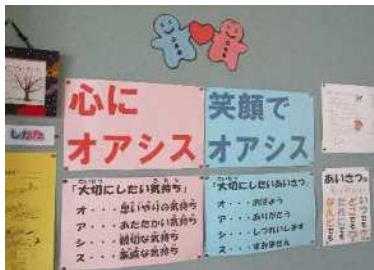 心に
オアシス
笑顔で
オアシス
「大切にしたい気持ち」
オ・・・思いやりの気持ち
ア・・・あたたかい気持ち
シ・・・親切な気持ち
ス・・・素直な気持ち
「大切にしたいあいさつ」
オ・・・おはよう
ア・・・ありがとう
シ・・・しつれいします
ス・・・すみません
あいさつは
いつでも
どこでも
だれにでも